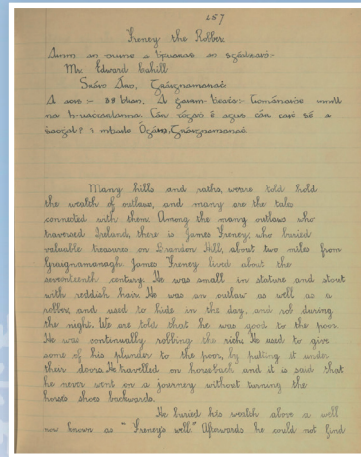 287
Freney the Robber
Ainm an duine a bhfuaras an sgéal uaidh:-
Mr. Edward Cahill
Sráid Árd, Gráignamanac
A aois :- 38 blian. A
no h-uaccalanna. Cán rugad é agus cán cuir sé a
saogal?
Many hills and raths, weare told hold
the wealth of outlaws, and many are the tales
connected with them. Among the many outlaws who
traversed Ireland, there is James Freney, who buried
valuable treasures on Brandon Hill, about two miles from
Graignamanagh. James Freney lived about the
seventeenth century. He was small in stature and stout
with reddish hair. He was an outlaw as well as a
robber, and used to hide in the day, and rob during
the night. We are told that he was good to the poor.
He was continually robbing the rich. He used to give
some of his plunder to the poor, by putting it under
their doors. He travelled on horseback and it is said that
he never went on a journey without turning the
horse's shoes backwards.
He buried his wealth above a well
now known as "Freney's well." Afterwards he could not find